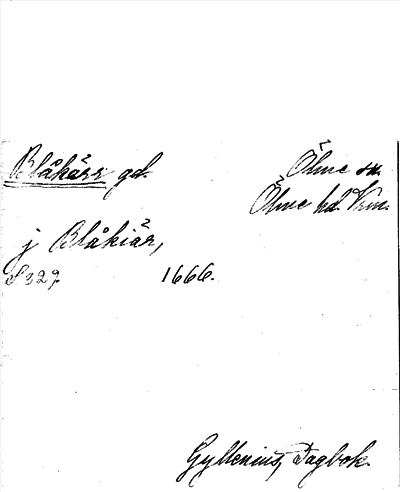 Blåkärr gd. Ölme sn.
Ölme hd. Vrm.
j Blåkiär,
S 329. 1666.
Gyllenius, Dagbok.